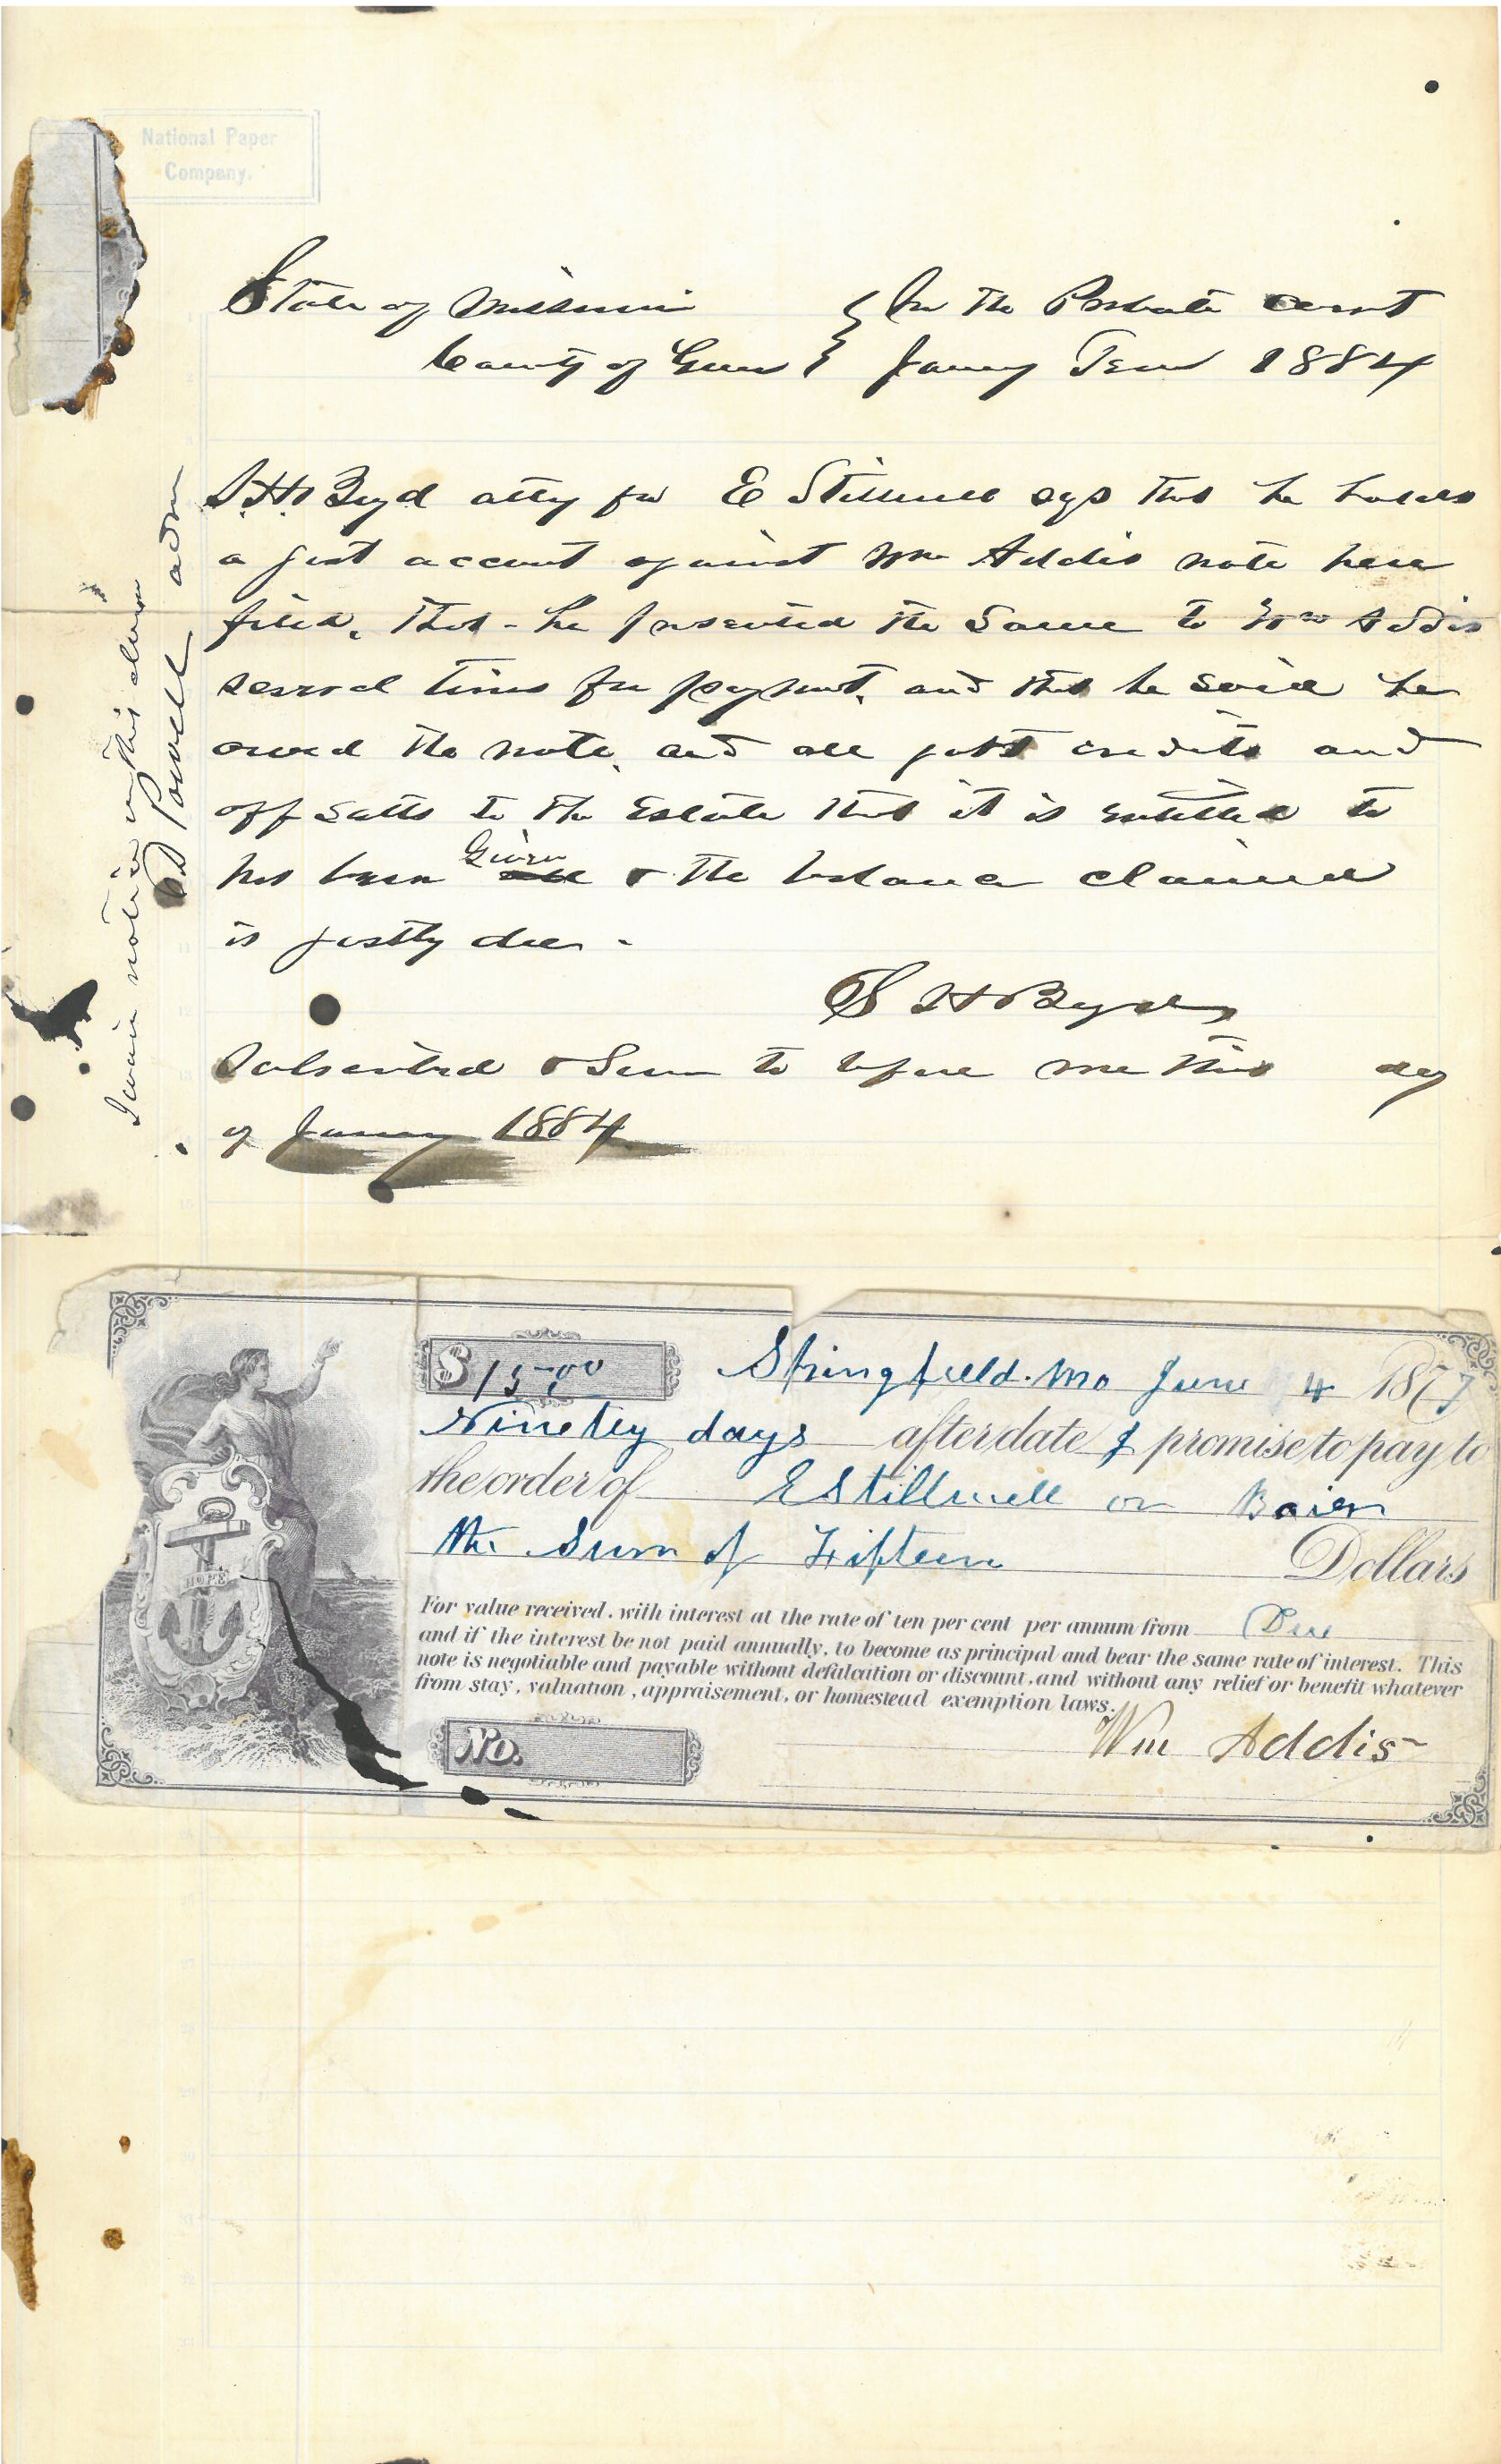 National Paper
Company.
State of Missouri } In the Probate court
County of Green } Janury Term 1884
S.H. Boyd atty for E Stillwell sys that he holds
a just account against Wm Addis note here
filed, that - he presented the same to Wm Addis
several times for payment, and that he said he
owed the note, and all just credits and
off setts to the Estate that it is entitled to
has been Given & the balance claimed
is justly due -
S H Boyd
Subscribed & Sworn to before me this day
of Janury 1884
I waive notice on this claim
Powell adm
$ 15.00 Springfield. Mo June 4 1877
Ninety days after date I promise to pay to
the order of E Stillwell or Baier
the Sum of Fifteen Dollars
For value received, with interest at the rate of ten per cent per annum from Due
and if the interest be not paid annually, to become as principal and bear the same rate of interest. This
note is negotiable and payable without defalcation or discount, and without any relief or benefit whatever
from stay, valuation, appraisement, or homestead exemption laws.
HOPE
No.
Wm Addis